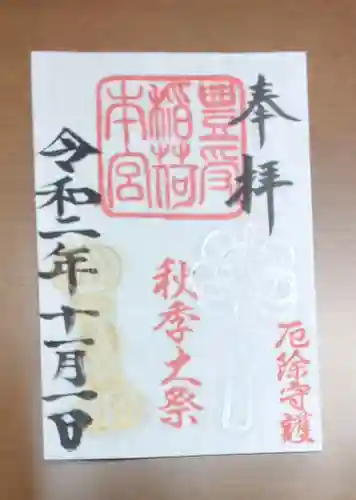 奉拝
豊受
稲荷
本宮
厄除守護
秋季大祭
令和二年十一月一日